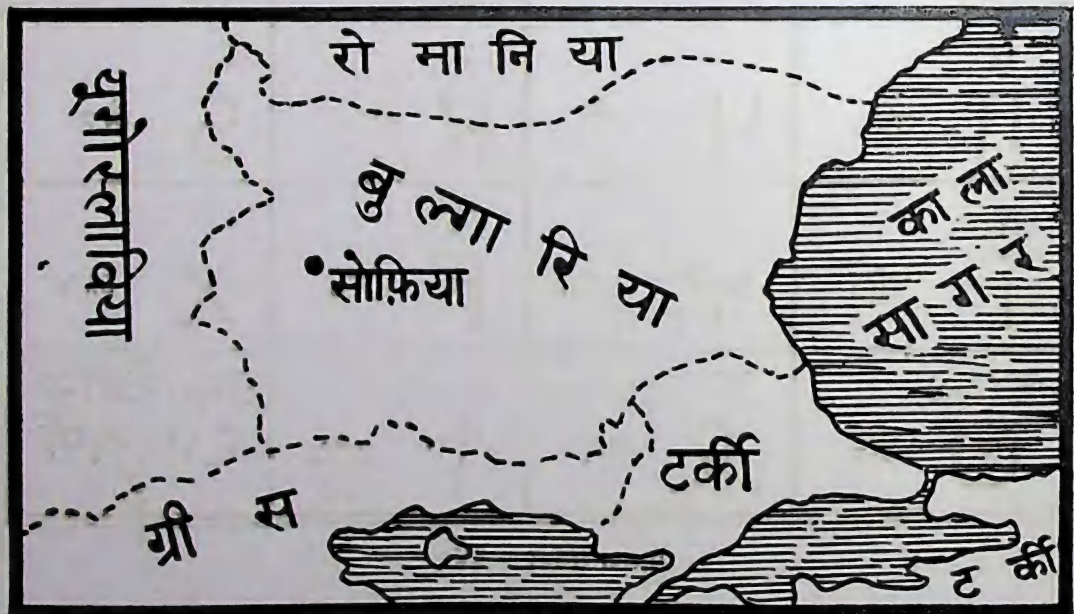 रोमानिया
यूगोस्लाविया
बुल्गारिया
सोफ़िया
काला
सागर
टर्की
ग्रीस
टर्की